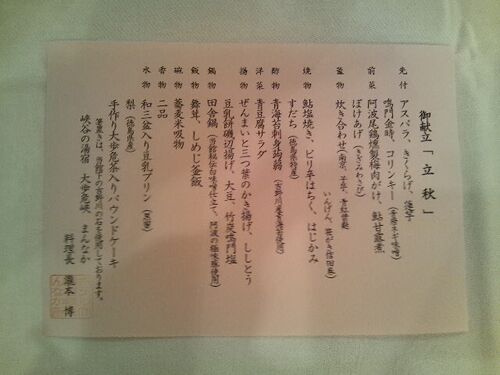 御献立「立秋」
先付 アスパラ、きくらげ、蓮芋
鳴門金時、コリンキー
前菜 阿波尾鶏燻製梅肉がけ、鮎甘露煮
ぼけあげ
釜物 炊き合わせ
焼物 鮎塩焼き、ピリ辛はちく、はじかみ
すだち(徳島県特産)
酢物 青海苔刺身蒟蒻
洋菜 青豆腐サラダ
揚物 ぜんまいと三つ葉のかき揚げ、ししとう
豆乳餅磯辺揚げ、大豆、竹炭鳴門塩
鍋物 田舎鍋
飯物 舞茸、しめじ釜飯
椀物 蕎麦米吸物
香物 二品
水物 和三盆入り豆乳プリン
梨(徳島産)
手作り大歩危茶入りパウンドケーキ
箸置きは、当館下の吉野川の石を使用しております。
峡谷の湯宿 大歩危峡 まんなか
料理長 瀧本 博